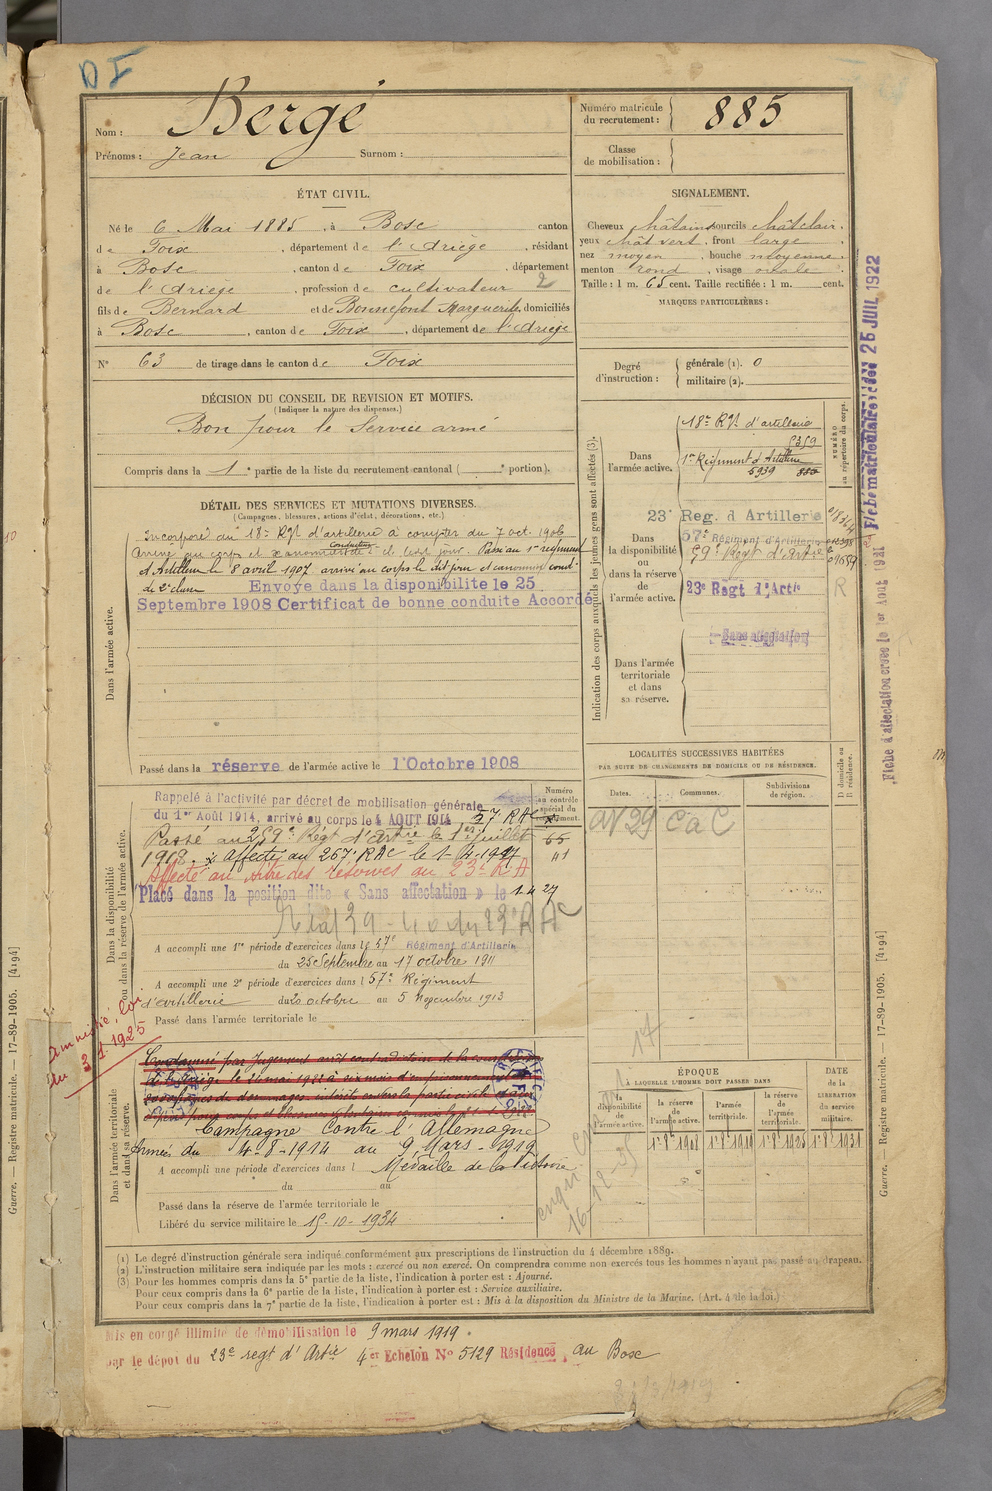 D I
Nom : Bergé
Prénoms : Jean Surnom :
Numéro matricule du recrutement : 885
Classe de mobilisation :
ÉTAT CIVIL.
Né le 6 Mai 1885, à Bosc canton
de Foix, département de l'Ariège, résidant
à Bosc, canton de Foix, département
de l'Ariège, profession de cultivateur 2
fils de Bernard et de Bonnefont Marguerite, domiciliés
à Bosc, canton de Foix, département de l'Ariège
N° 63 de tirage dans le canton de Foix
SIGNALEMENT.
Cheveux châtains sourcils chât clair.
yeux chât vert, front large
nez moyen, bouche moyenne.
menton rond, visage ovale.
Taille : 1 m. 65 cent. Taille rectifiée : 1 m. cent.
MARQUES PARTICULIÈRES :
Degré d'instruction : générale (1). 0
militaire (2).
DÉCISION DU CONSEIL DE REVISION ET MOTIFS.
(Indiquer la nature des dispenses.)
Bon pour le Service armé
Compris dans la 1e partie de la liste du recrutement cantonal ( e portion).
DÉTAIL DES SERVICES ET MUTATIONS DIVERSES.
(Campagnes, blessures, actions d'éclat, décorations, etc.)
Dans l'armée active.
Incorporé au 18e Rgt d'artillerie à compter du 7 oct. 1906
Arrivé au corps et canonnier conducteur le dit jour. Passé au 1er régiment
d'Artillerie le 8 avril 1907 arrivé au corps le dit jour et canonnier cond.
de 2e classe Envoye dans la disponibilite le 25
Septembre 1908 Certificat de bonne conduite Accordé
Passé dans la réserve de l'armée active le 1'Octobre 1908
Indication des corps auxquels les jeunes gens sont affectés (3).
NUMÉRO au répertoire du corps.
Dans l'armée active.
18e Rgt d'artillerie
5359
1er Régiment d'Artillerie
5939 880
Dans la disponibilité ou dans la réserve de l'armée active.
23' Reg. d Artillerie
57e Régiment d'Artillerie
59e Regt d'Artie
23e Regt d'Artie
R
Dans l'armée territoriale et dans sa réserve.
Sans affectation
Fiche matriculaire 26 JUIL 1922
Fiche d'affectation créée le 1er Aout 1921
LOCALITÉS SUCCESSIVES HABITÉES
PAR SUITE DE CHANGEMENTS DE DOMICILE OU DE RÉSIDENCE.
Dates. Communes. Subdivisions de région. D domicile ou R résidence.
av 29 CaC
Dans la disponibilité ou dans la réserve de l'armée active.
Numéro au contrôle spécial du recrutement.
Rappelé à l'activité par décret de mobilisation générale
du 1er Août 1914, arrivé au corps le 4 AOUT 1914, 57 RAC
Passé au 259e Régt d'Artie le 1er juillet 65
1918. Affecté au 267e RAC le 1-4-1917 41
Affecté au titre des réserves au 23e RA
Placé dans la position dite « Sans affectation » le 1.4 27
A accompli une 1re période d'exercices dans le 57e Régiment d'Artillerie
du 25 Septembre au 17 octobre 1911
A accompli une 2e période d'exercices dans l 57e Régiment
d'artillerie du 20 octobre au 5 Novembre 1913
Passé dans l'armée territoriale le
17
Amnistié, loi
du 3.1.1925
Dans l'armée territoriale et dans sa réserve.
Condamné par Jugement
de l'Ariège le 26 mai 1922 à six mois d'emprisonnement
Campagne contre l'Allemagne
Armées du 4-8-1914 au 9 Mars 1919
A accompli une période d'exercices dans l Médaille de la Victoire
du au
Passé dans la réserve de l'armée territoriale le
Libéré du service militaire le 15-10-1934
16-12-35
ÉPOQUE
À LAQUELLE L'HOMME DOIT PASSER DANS
la disponibilité de l'armée active. la réserve de l'armée active. l'armée territoriale. la réserve de l'armée territoriale.
DATE de la LIBÉRATION du service militaire.
1er 8bre 1908 1er 8bre 1931
(1) Le degré d'instruction générale sera indiqué conformément aux prescriptions de l'instruction du 4 décembre 1889.
(2) L'instruction militaire sera indiquée par les mots : exercé ou non exercé. On comprendra comme non exercés tous les hommes n'ayant pas passé au drapeau.
(3) Pour les hommes compris dans la 5e partie de la liste, l'indication à porter est : Ajourné.
Pour ceux compris dans la 6e partie de la liste, l'indication à porter est : Service auxiliaire.
Pour ceux compris dans la 7e partie de la liste, l'indication à porter est : Mis à la disposition du Ministre de la Marine. (Art. 4 de la loi.)
Mis en congé illimité de démobilisation le 9 mars 1919.
par le dépot du 23e regt d'Artie 4er Echelon N° 5129 Résidence, au Bosc
Guerre. — Registre matricule. — 17-89-1905. [4194]
Guerre. — Registre matricule. — 17-89-1905. [4194]